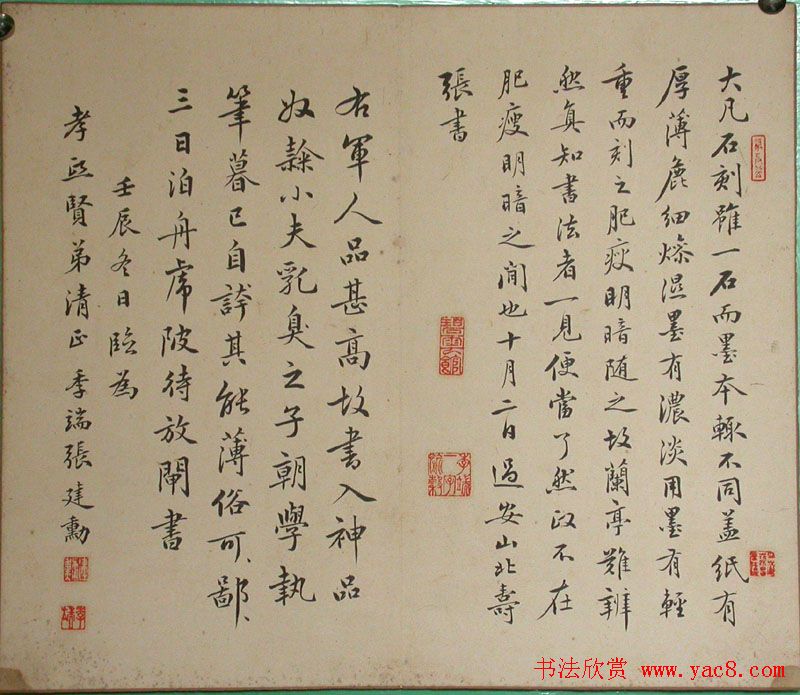 大凡石刻雖一石而墨本輙不同盖紙有
厚薄麄細燥濕墨有濃淡用墨有輕
重而刻之肥瘦明暗随之故蘭亭難辨
然真知書法者一見便當了然政不在
肥瘦明暗之間也十月二日過安山北壽
張書
右軍人品甚高故書入神品
奴隸小夫乳臭之子朝學執
筆暮已自誇其能薄俗可鄙
三日泊舟虎陂待放閘書
壬辰冬日臨為
孝 賢弟清正季端張建勳
书法欣赏 www.yac8.com